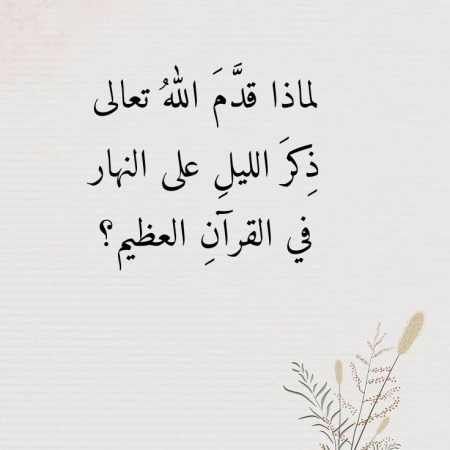 لماذا قدَّمَ اللهُ تعالى
ذِكرَ الليلِ على النهار
في القرآنِ العظيم؟